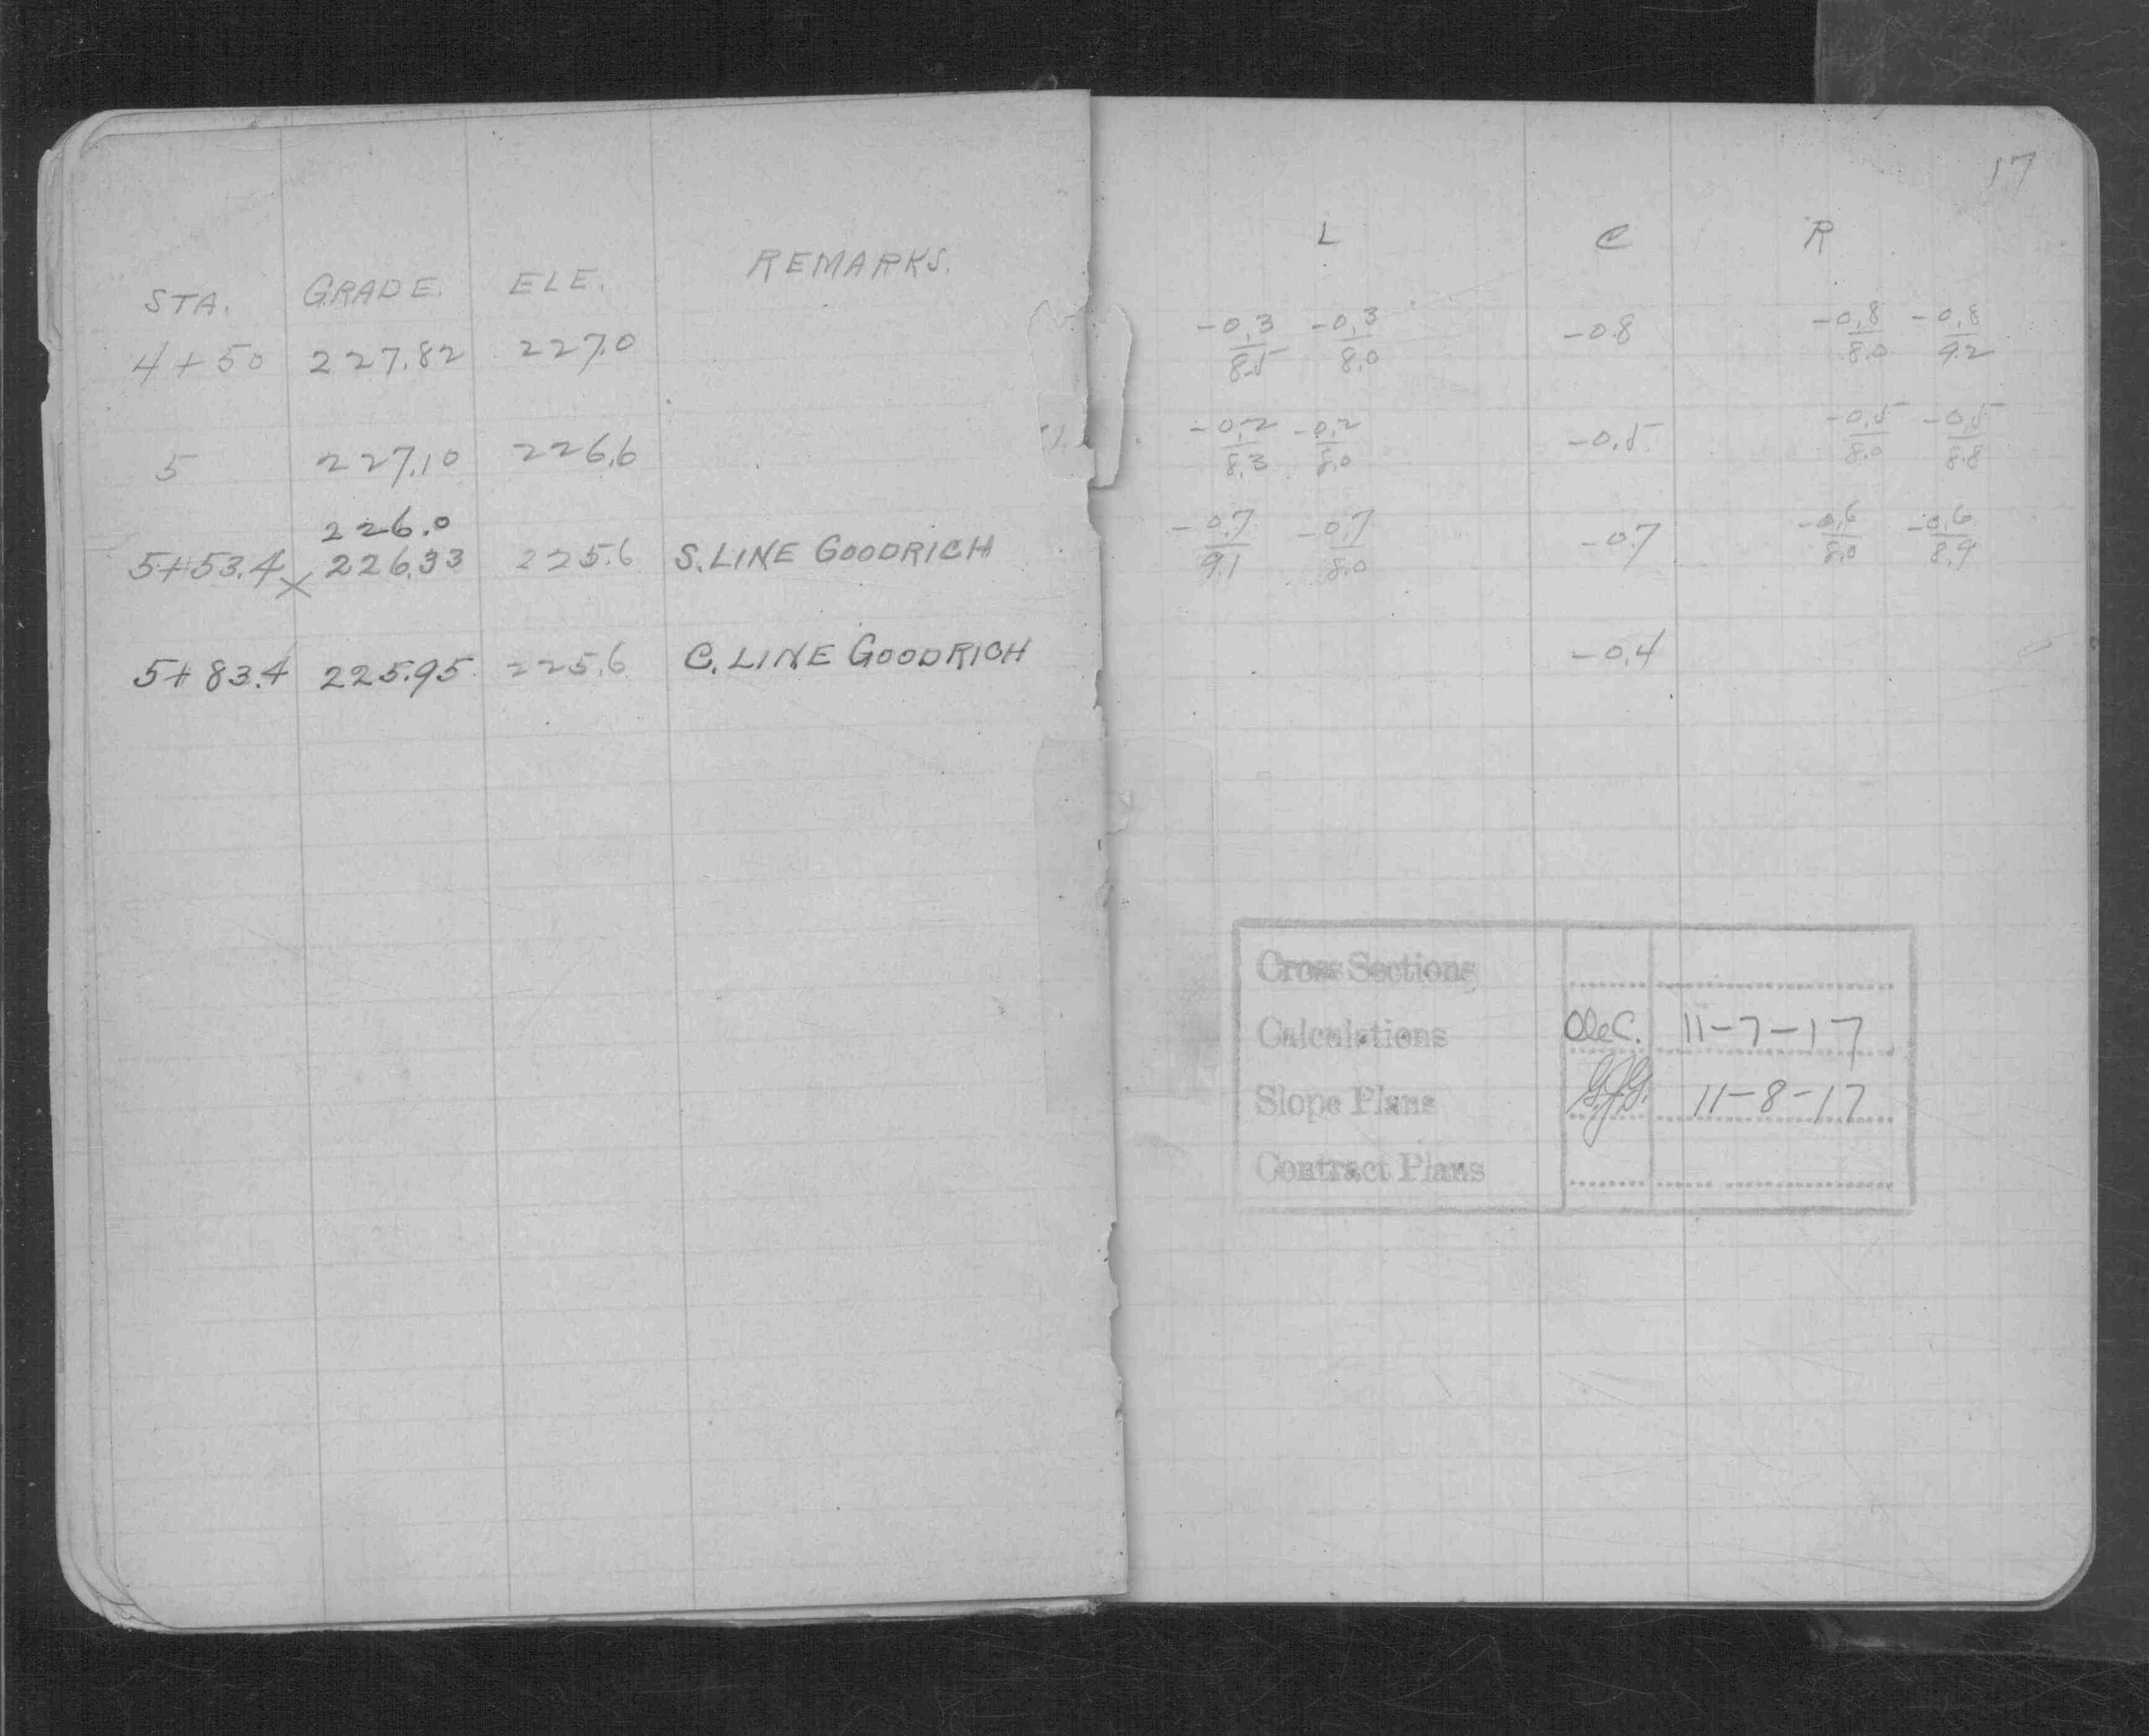 17
STA. GRADE. ELE. REMARKS. L C R
4+50 227.82 227.0 -0.3/8.5 -0.3/8.0 -0.8 -0.8/8.0 -0.8/9.2
5 227.10 226.6 -0.2/8.3 -0.2/8.0 -0.5 -0.5/8.0 -0.5/8.8
226.0
5+53.4 x 226.33 225.6 S. LINE GOODRICH -0.7/9.1 -0.7/8.0 -0.7 -0.6/8.0 -0.6/8.9
5+83.4 225.95 225.6 C. LINE GOODRICH -0.4
Cross Sections
Calculations 11-7-17
Slope Plans G.J.G. 11-8-17
Contract Plans